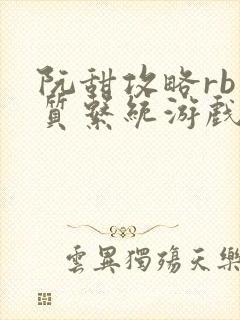 阮甜攻略rb
質系統游戲
雲異獨殤天樂